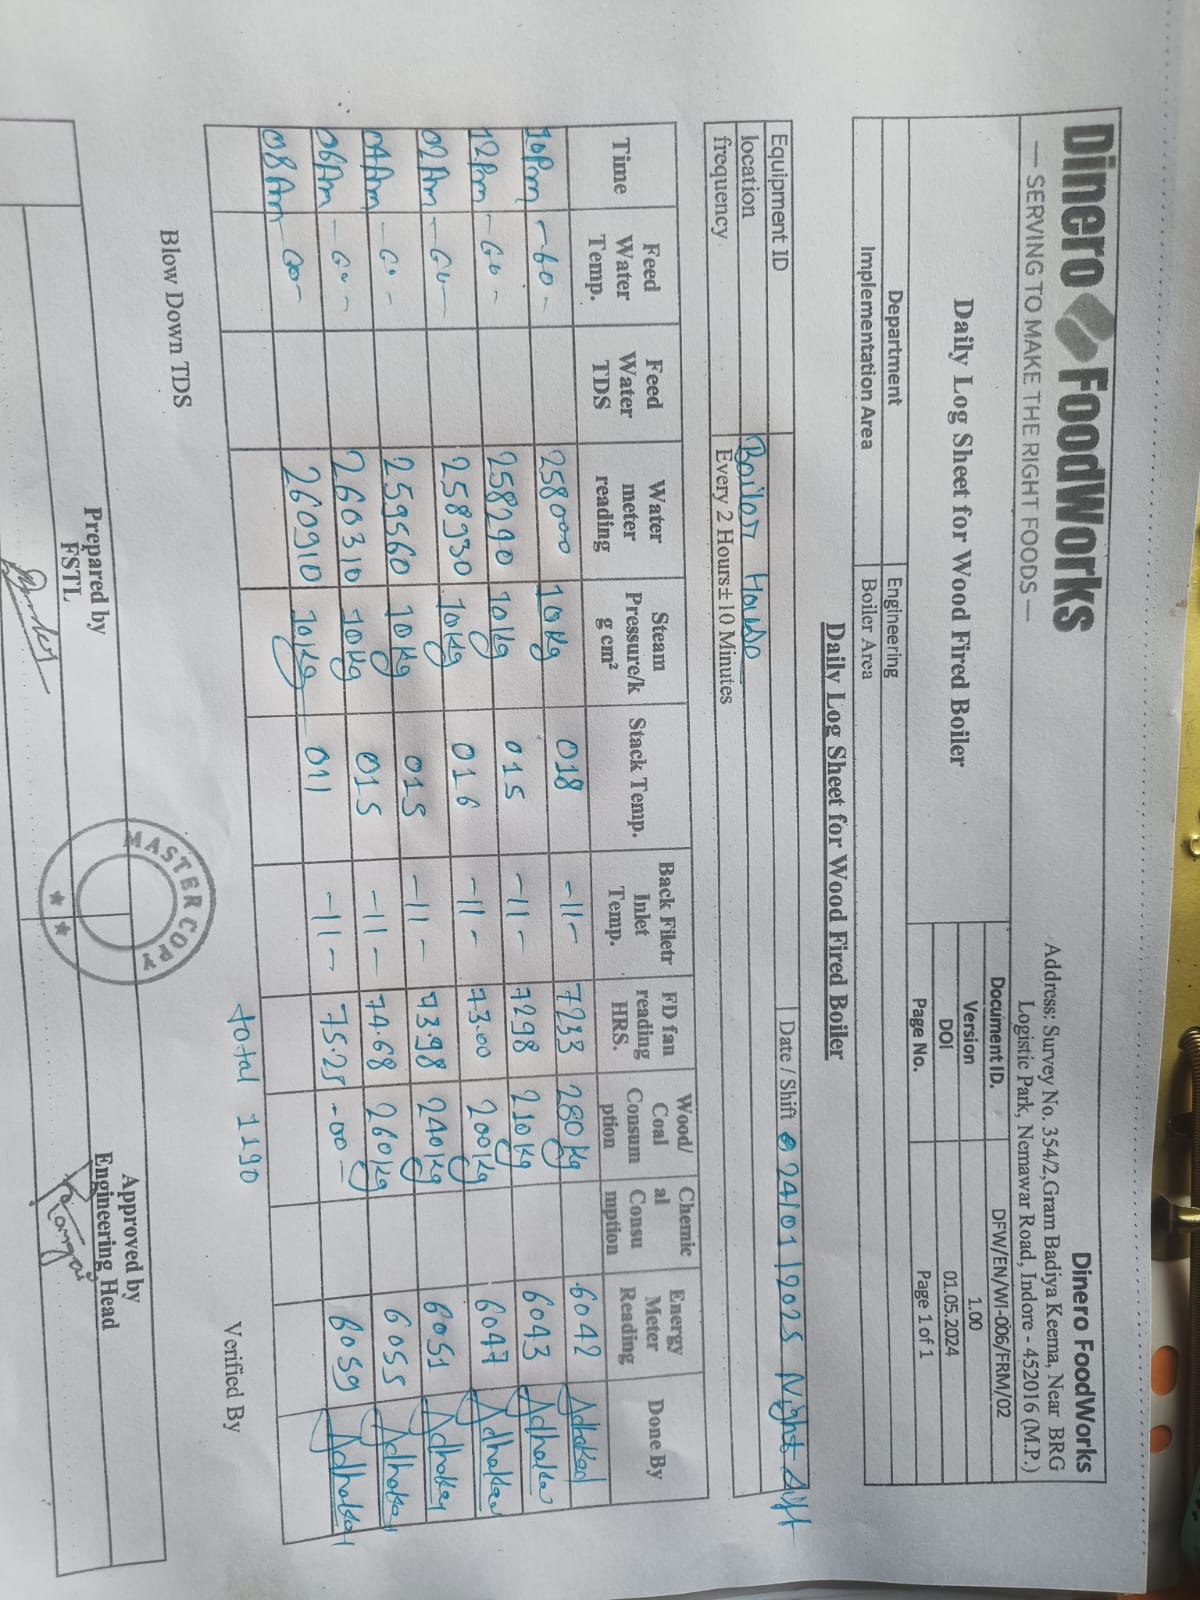 Dinero FoodWorks
— SERVING TO MAKE THE RIGHT FOODS —
Dinero FoodWorks
Address: Survey No. 354/2,Gram Badiya Keema, Near BRG
Logistic Park, Nemawar Road, Indore - 452016 (M.P.)
Daily Log Sheet for Wood Fired Boiler
Document ID. DFW/EN/WI-006/FRM/02
Version 1.00
DOI 01.05.2024
Page No. Page 1 of 1
Department Engineering
Implementation Area Boiler Area
Daily Log Sheet for Wood Fired Boiler
Equipment ID Date / Shift 24/01/2025 Night
location Boiler House
frequency Every 2 Hours±10 Minutes
Time Feed Water Temp. Feed Water TDS Water meter reading Steam Pressure/k g cm² Stack Temp. Back Filetr Inlet Temp. FD fan reading HRS. Wood/ Coal Consum ption Chemic al Consu mption Energy Meter Reading Done By
10Pm -60- 258000 10Kg 018 -11- 7233 280Kg 6042 Adhakad
12Pm -60- 258290 10Kg 015 -11- 7298 210Kg 6043
02Am -60- 258930 10Kg 016 -11- 73.00 200Kg 6047
04Am -60- 259560 10Kg 015 -11- 73.98 240Kg 6051
06Am -60- 260310 10Kg 015 -11- 74.68 260Kg 6055
08Am -60- 260910 10Kg 011 -11- 75.25 -00- 6059
total 1190
Verified By
Blow Down TDS
MASTER COPY
Prepared by
FSTL
Approved by
Engineering Head